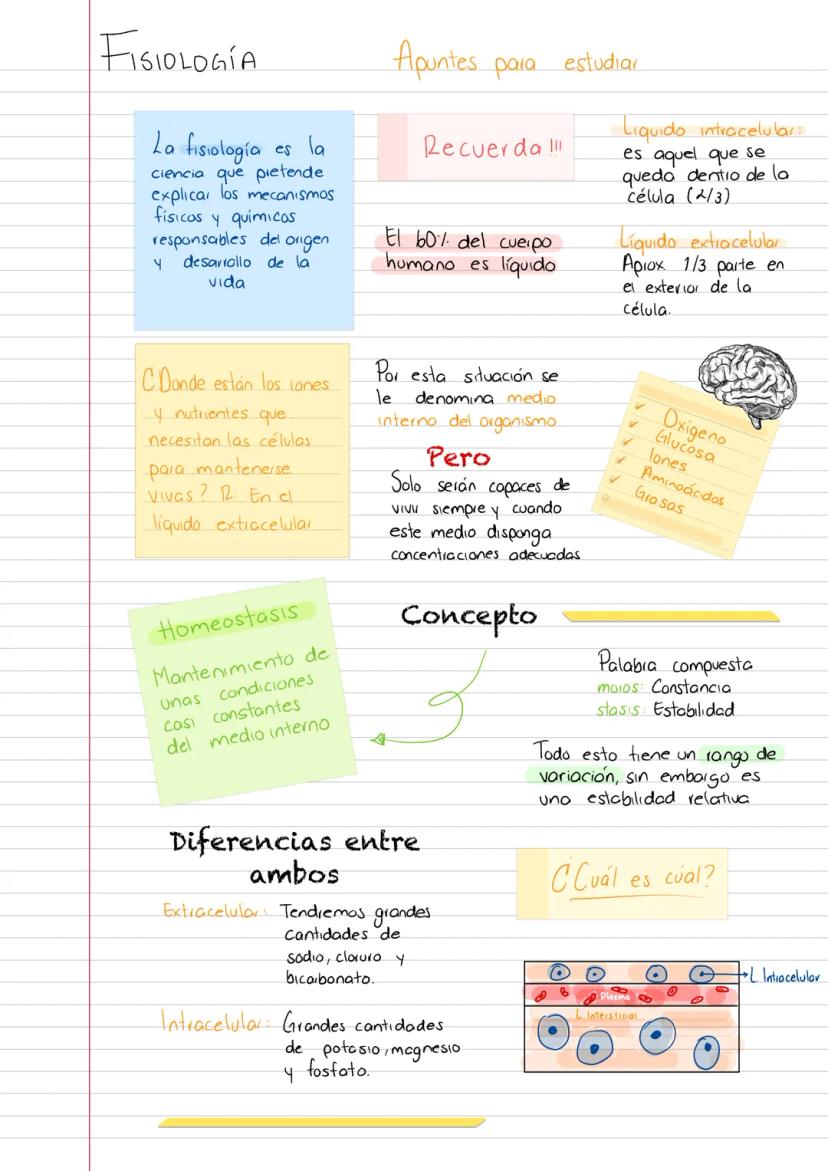 FISIOLOGÍA
Apuntes para estudiar
La fisiología es la
ciencia que pretende
explicar los mecanismos
físicos y químicos
responsables del origen
y desarrollo de la
vida
Recuerda !!!
El 60% del cuerpo
humano es líquido
Líquido intracelular:
es aquel que se
queda dentro de la
célula (2/3)
Líquido extracelular
Aprox 1/3 parte en
el exterior de la
célula.
¿Donde están los iones
y nutrientes que
necesitan las células
para mantenerse
vivas? R: En el
líquido extracelular
Por esta situación se
le denomina medio
interno del organismo
Pero
Solo serán capaces de
vivir siempre y cuando
este medio disponga
concentraciones adecuadas
Oxígeno
Glucosa
Iones
Aminoácidos
Grasas
Homeostasis
Mantenimiento de
unas condiciones
casi constantes
del medio interno
Concepto
Palabra compuesta
moios: Constancia
stasis: Estabilidad
Todo esto tiene un rango de
variación, sin embargo es
una estabilidad relativa
Diferencias entre
ambos
Extracelular: Tendremos grandes
cantidades de
sodio, cloruro y
bicarbonato.
Intracelular: Grandes cantidades
de potasio, magnesio
y fosfato.
¿Cuál es cúal?
L. Intracelular
Plasma
L. Intersticial